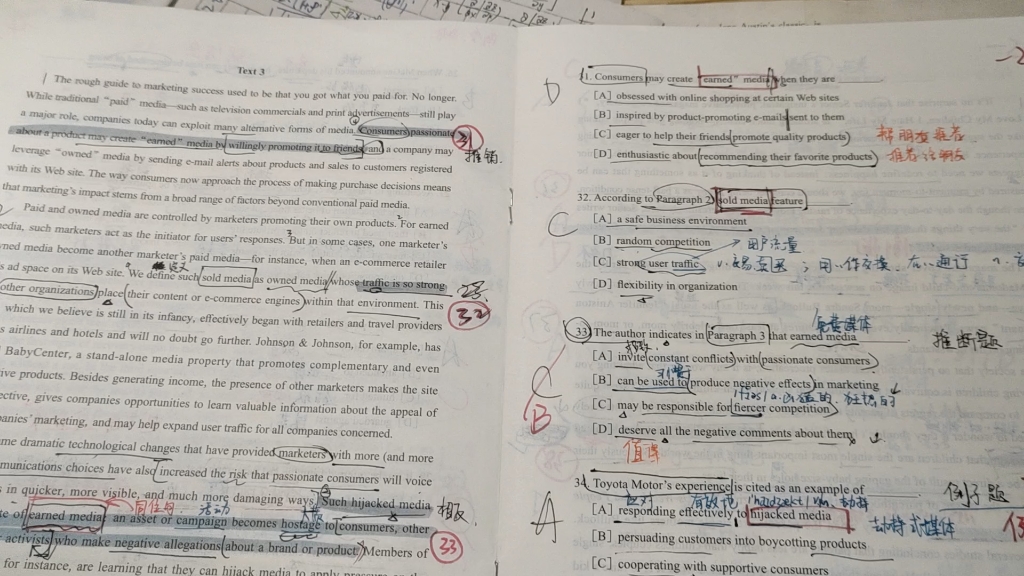 Text 3
The rough guide to marketing success used to be that you got what you paid for. No longer.
While traditional "paid" media—such as television commercials and print advertisements—still play
a major role, companies today can exploit many alternative forms of media. Consumers passionate
about a product may create "earned" media by willingly promoting it to friends, and a company may
leverage "owned" media by sending e-mail alerts about products and sales to customers registered
with its Web site. The way consumers now approach the process of making purchase decisions means
that marketing's impact stems from a broad range of factors beyond conventional paid media.
Paid and owned media are controlled by marketers promoting their own products. For earned
media, such marketers act as the initiator for users' responses. But in some cases, one marketer's
owned media become another marketer's paid media—for instance, when an e-commerce retailer
ad space on its Web site. We define such sold media as owned media whose traffic is so strong
other organizations place their content or e-commerce engines within that environment. This
which we believe is still in its infancy, effectively began with retailers and travel providers
as airlines and hotels and will no doubt go further. Johnson & Johnson, for example, has
BabyCenter, a stand-alone media property that promotes complementary and even
products. Besides generating income, the presence of other marketers makes the site
gives companies opportunities to learn valuable information about the appeal of
marketing, and may help expand user traffic for all companies concerned.
dramatic technological changes that have provided marketers with more (and more
choices have also increased the risk that passionate consumers will voice
in quicker, more visible, and much more damaging ways. Such hijacked media
of earned media: an asset or campaign becomes hostage to consumers, other
activists who make negative allegations about a brand or product. Members of
for instance, are learning that they can hijack media to apply
31
推销
32
33
相反
活动
D
31. Consumers may create "earned" media when they are
[A] obsessed with online shopping at certain Web sites
[B] inspired by product-promoting e-mails sent to them
[C] eager to help their friends promote quality products
[D] enthusiastic about recommending their favorite products
帮朋友推荐
推荐给朋友
C
32. According to Paragraph 2, sold media feature
[A] a safe business environment
[B] random competition
用户流量
[C] strong user traffic
[D] flexibility in organization
33. The author indicates in Paragraph 3 that earned media
免费媒体
推断题
[A] invite constant conflicts with passionate consumers
[B] can be used to produce negative effects in marketing
[C] may be responsible for fiercer competition
[D] deserve all the negative comments about them
值得
C
B
34. Toyota Motor's experience is cited as an example of
例子题
应对
[A] responding effectively to hijacked media
劫持式媒体
[B] persuading customers into boycotting products
[C] cooperating with supportive consumers
A